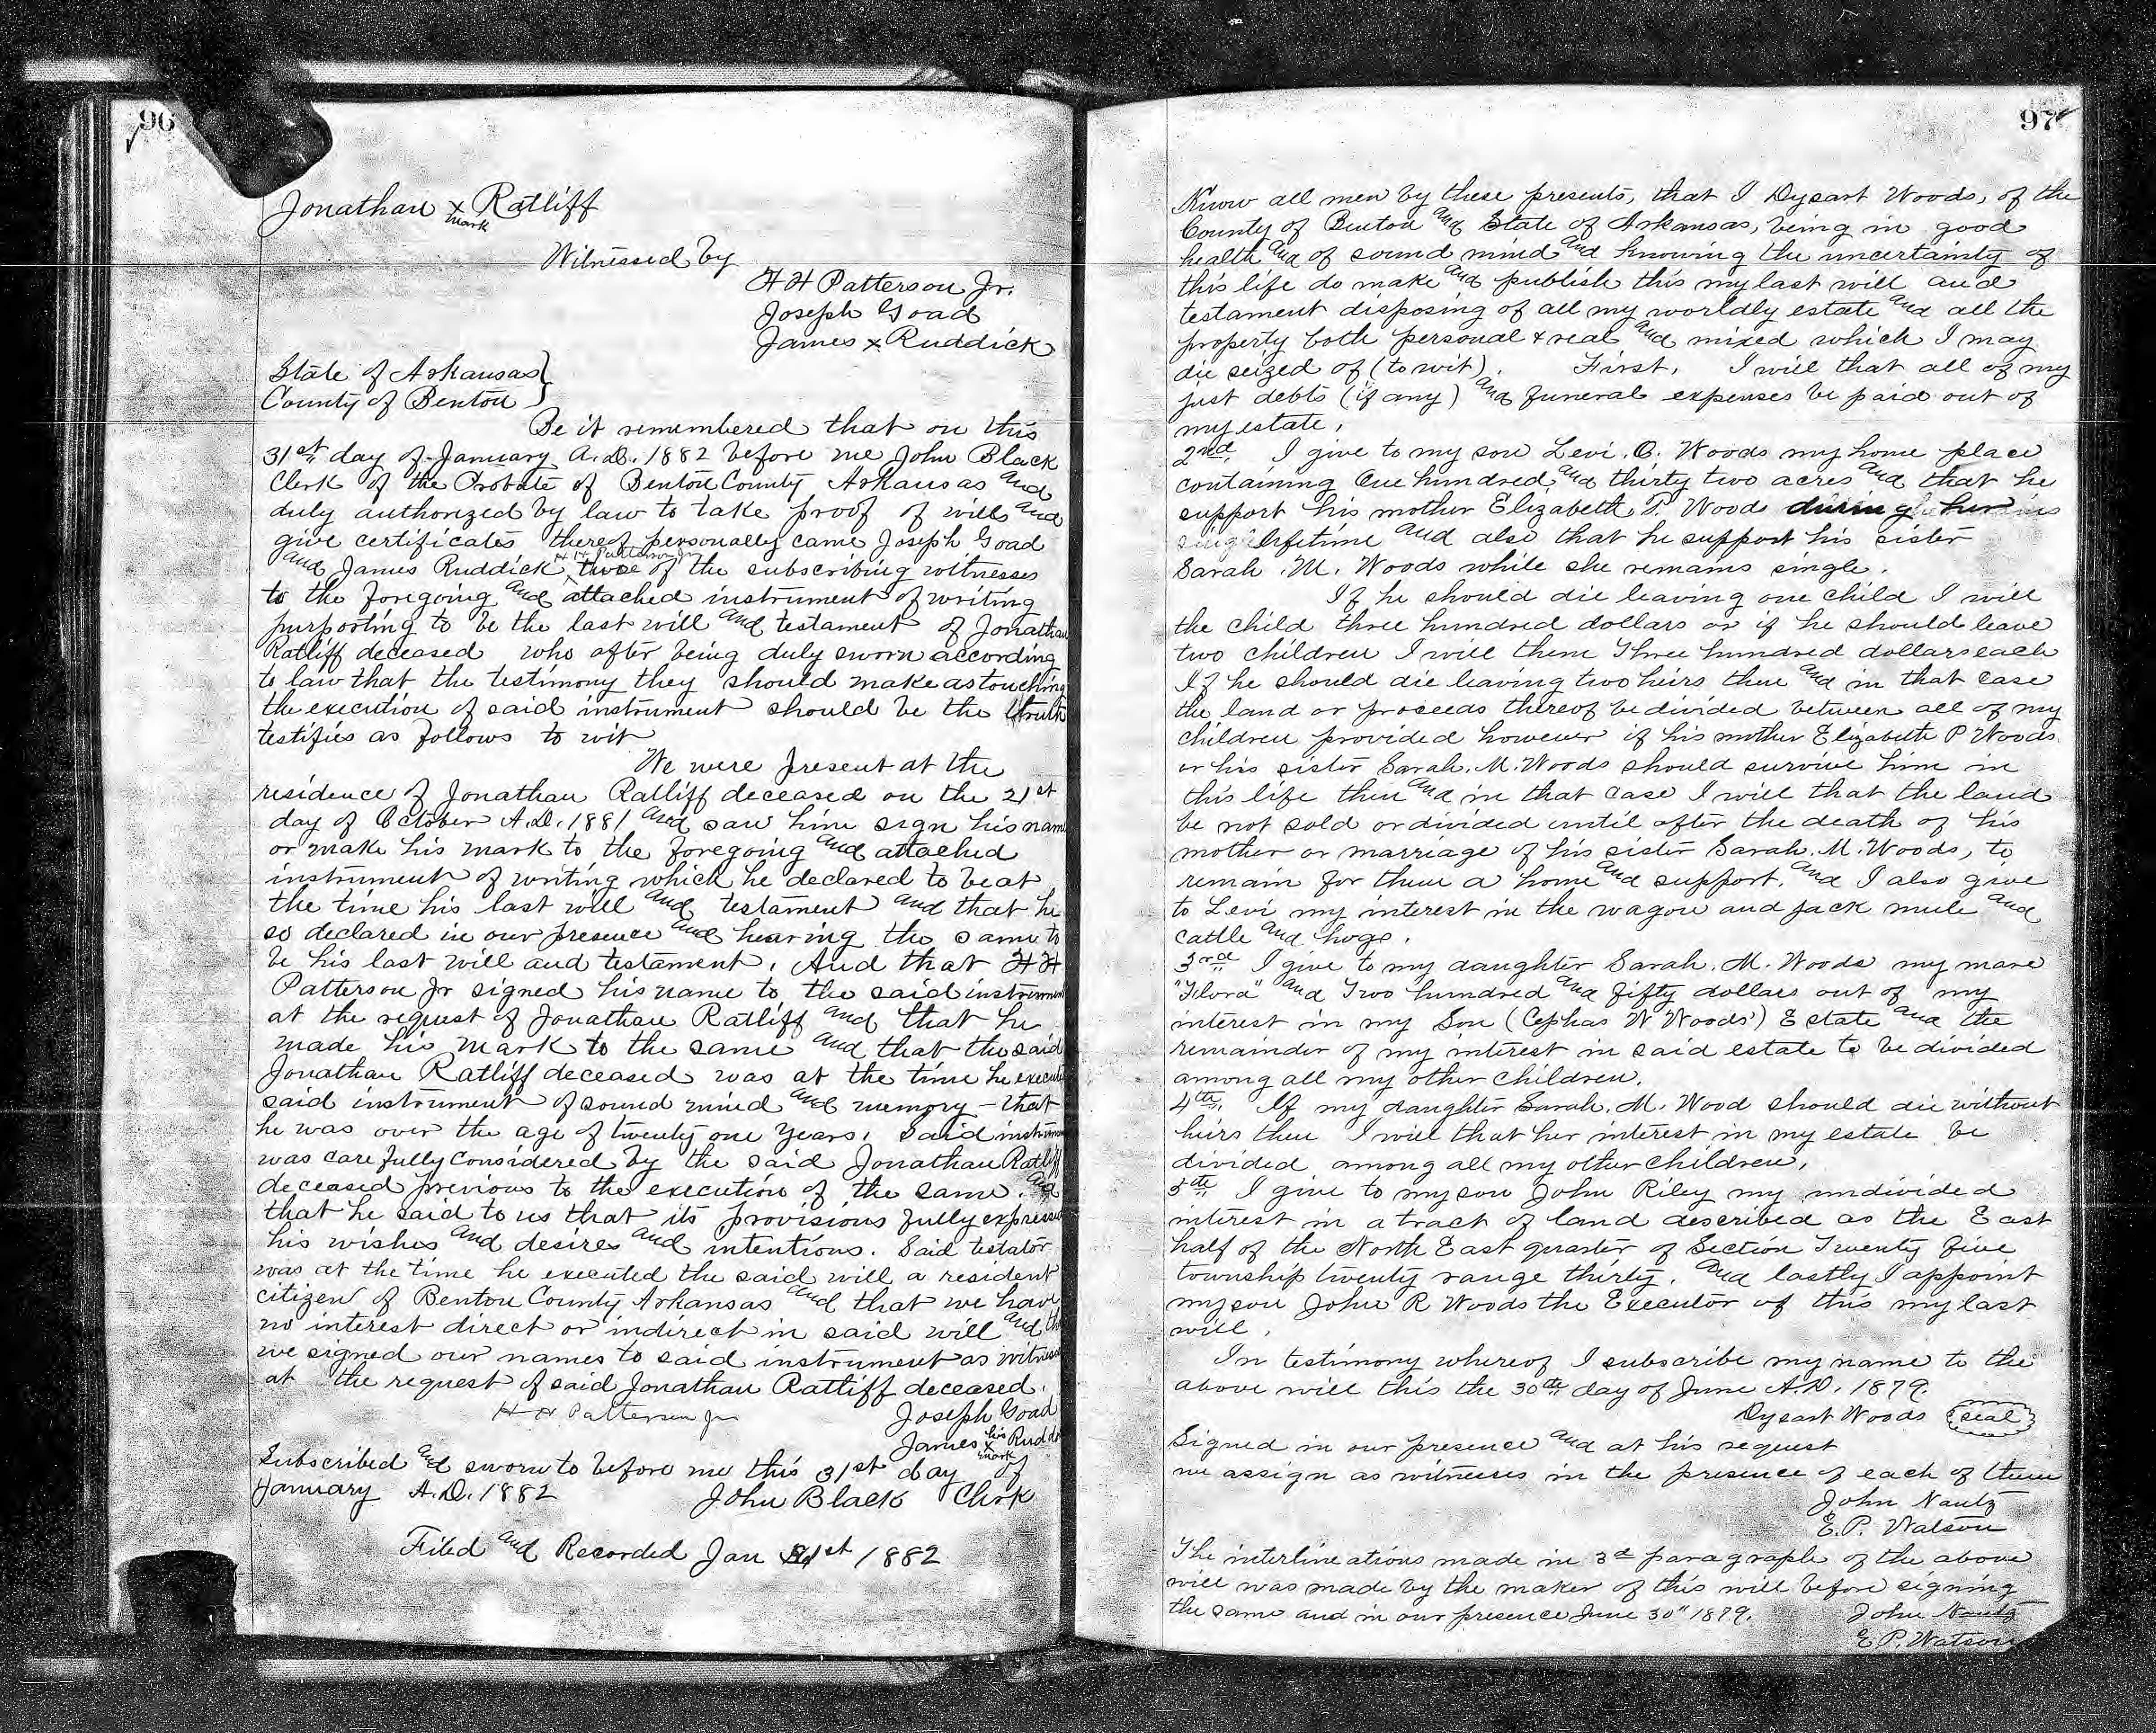 96
Jonathan x Ratliff
mark
Witnessed by
H H Patterson Jr.
Joseph Goad
James x Ruddick
State of Arkansas }
County of Benton }
Be it remembered that on this
31st day of January A.D. 1882 before me John Black
Clerk of the Probate of Benton County Arkansas and
duly authorized by law to take proof of wills and
give certificates thereof personally came Joseph Goad
H H Patterson Jr
and James Ruddick of the subscribing witnesses
to the foregoing and attached instrument of writing
purporting to be the last will and testament of Jonathan
Ratliff deceased who after being duly sworn according
to law that the testimony they should make as touching
the execution of said instrument should be the truth
testifies as follows to wit
We were present at the
residence of Jonathan Ratliff deceased on the 21st
day of October A.D. 1881 and saw him sign his name
or make his mark to the foregoing and attached
instrument of writing which he declared to be at
the time his last will and testament and that he
so declared in our presence and hearing the same to
be his last will and testament. And that H H
Patterson Jr signed his name to the said instrument
at the request of Jonathan Ratliff and that he
made his mark to the same and that the said
Jonathan Ratliff deceased was at the time he
said instrument of sound mind and memory - that
he was over the age of twenty one years. Said
was carefully considered by the said Jonathan Ratliff
deceased previous to the execution of the same. and
that he said to us that its provisions fully
his wishes and desires and intentions. Said testator
was at the time he executed the said will a resident
citizen of Benton County Arkansas and that we have
no interest direct or indirect in said will and
we signed our names to said instrument as
at the request of said Jonathan Ratliff deceased.
H H Patterson Jr Joseph Goad
his
James x
mark
Subscribed and sworn to before me this 31st day of
January A.D. 1882 John Black Clerk
Filed and Recorded Jan 31st 1882
97
Know all men by these presents, that I Dysart Woods, of the
County of Benton and State of Arkansas, being in good
health and of sound mind and knowing the uncertainty of
this life do make and publish this my last will and
testament disposing of all my worldly estate and all the
property both personal & real and mixed which I may
die seized of (to wit). First, I will that all of my
just debts (if any) and funeral expenses be paid out of
my estate.
2nd. I give to my son Levi. O. Woods my home place
containing One hundred and thirty two acres and that he
support his mother Elizabeth P. Wood during her
lifetime and also that he support his sister
Sarah. M. Woods while she remains single.
If he should die leaving one child I will
the child three hundred dollars or if he should leave
two children I will them Three hundred dollars each
If he should die leaving two heirs then and in that case
the land or proceeds thereof be divided between all of my
children provided however if his mother Elizabeth P Woods
or his sister Sarah. M. Woods should survive him in
this life then and in that case I will that the land
be not sold or divided until after the death of his
mother or marriage of his sister Sarah. M. Woods, to
remain for them a home and support, and I also give
to Levi my interest in the wagon and jack mule and
cattle and hogs.
3rd I give to my daughter Sarah. M. Woods my mare
"Flora" and Two hundred and fifty dollars out of my
interest in my Son (Cephas W Woods') Estate and the
remainder of my interest in said estate to be divided
among all my other children.
4th. If my daughter Sarah. M. Wood should die without
heirs then I will that her interest in my estate be
divided among all my other children.
5th I give to my son John Riley my undivided
interest in a tract of land described as the East
half of the North East quarter of Section Twenty five
township twenty range thirty. and lastly I appoint
my son John R Woods the Executor of this my last
will.
In testimony whereof I subscribe my name to the
above will this the 30th day of June A.D. 1879.
Dysart Woods seal
Signed in our presence and at his request
we assign as witnesses in the presence of each of them
John Nantz
E. P. Watson
The interlineations made in 3d paragraph of the above
will was made by the maker of this will before signing
the same and in our presence June 30" 1879. John Nantz
E P. Watson